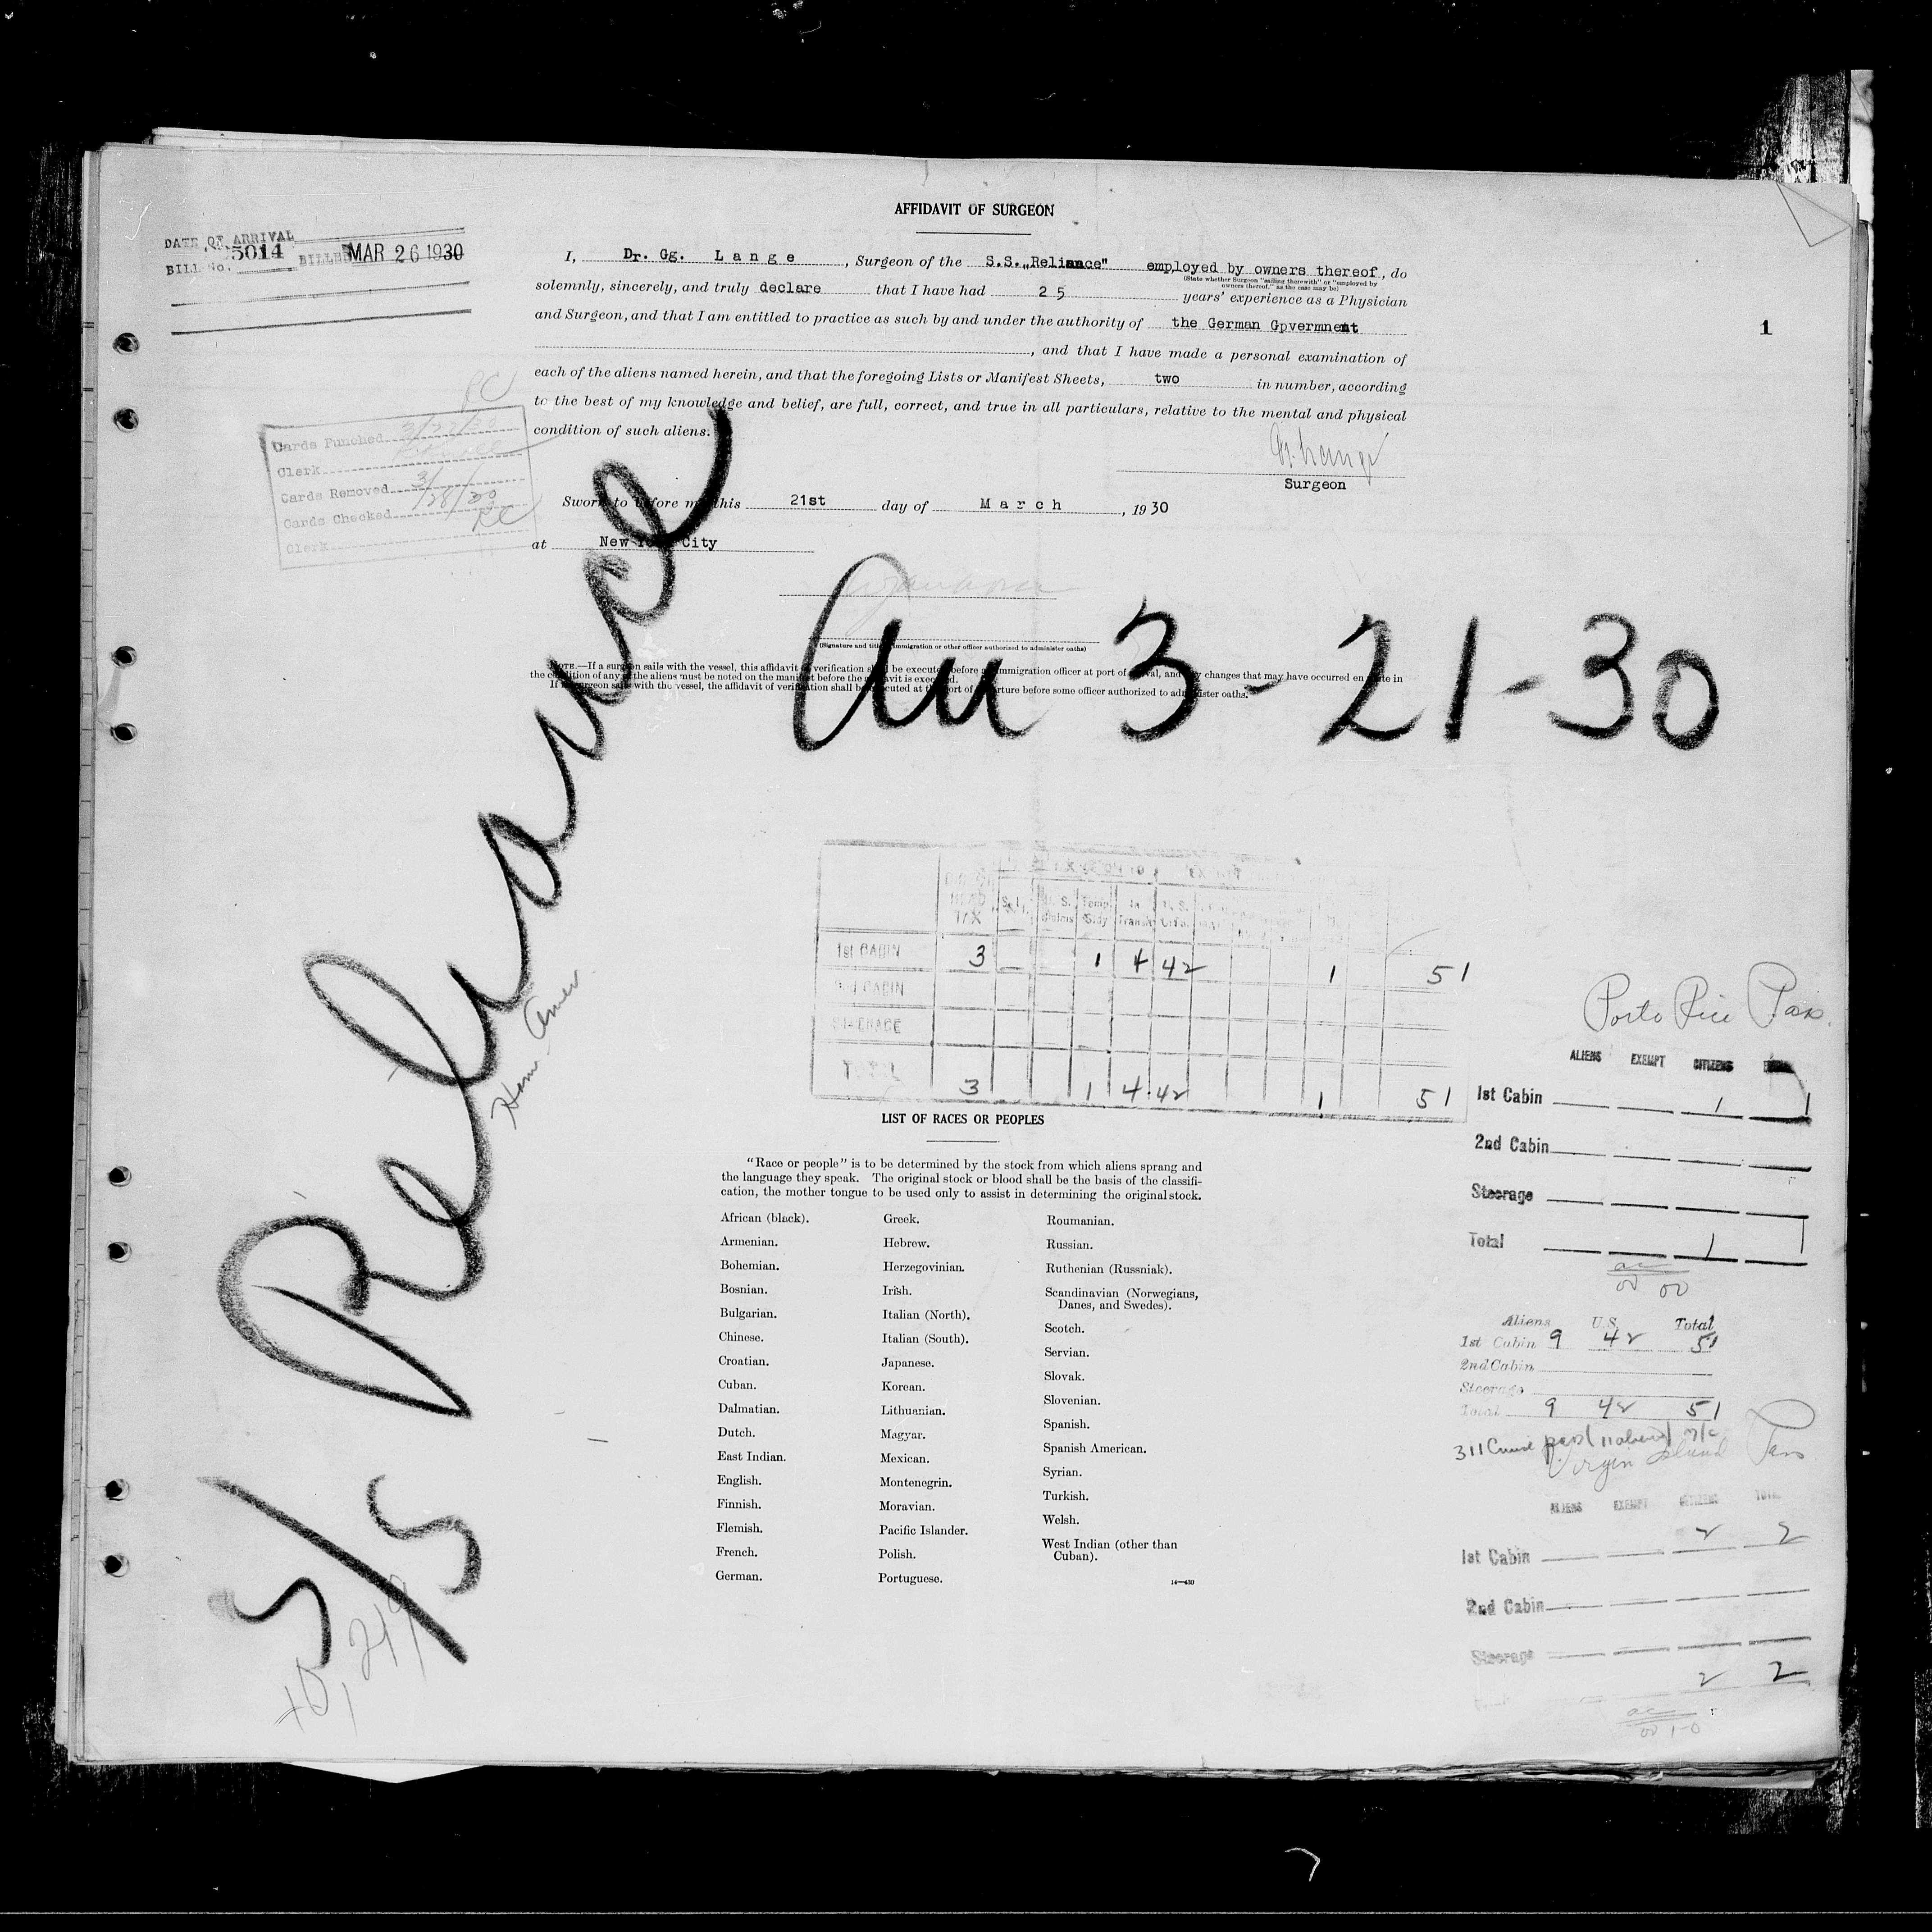 AFFIDAVIT OF SURGEON
DATE OF ARRIVAL
BILL No. 5014 BILLED MAR 26 1930
I, Dr. Gg. Lange, Surgeon of the S.S. „Reliance" employed by owners thereof, do
(State whether Surgeon "sailing therewith" or "employed by
owners thereof," as the case may be)
solemnly, sincerely, and truly declare that I have had 25 years' experience as a Physician
and Surgeon, and that I am entitled to practice as such by and under the authority of the German Gpvermnent
, and that I have made a personal examination of
each of the aliens named herein, and that the foregoing Lists or Manifest Sheets, two in number, according
to the best of my knowledge and belief, are full, correct, and true in all particulars, relative to the mental and physical
condition of such aliens.
1
RC
Cards Punched
Clerk
Cards Removed 3/28/30
Cards Checked RC
Clerk
Surgeon
Sworn to before me this 21st day of March, 1930
at New York City
(Signature and title immigration or other officer authorized to administer oaths)
NOTE.—If a surgeon sails with the vessel, this affidavit verification shall be executed before immigration officer at port of arrival, and any changes that may have occurred en route in
the condition of any of the aliens must be noted on the manifest before the affidavit is executed.
If surgeon sails with the vessel, the affidavit of verification shall be executed at port of departure before some officer authorized to administer oaths.
Reliance
3-21-30
Ham. Amer.
S/S
HEAD TAX U.S. Temp. Stdy In Transit U.S.
1st CABIN 3 1 4 42 1 51
2nd CABIN
STEERAGE
TOTAL 3 1 4 42 1 51
LIST OF RACES OR PEOPLES
"Race or people" is to be determined by the stock from which aliens sprang and
the language they speak. The original stock or blood shall be the basis of the classifi-
cation, the mother tongue to be used only to assist in determining the original stock.
African (black).
Armenian.
Bohemian.
Bosnian.
Bulgarian.
Chinese.
Croatian.
Cuban.
Dalmatian.
Dutch.
East Indian.
English.
Finnish.
Flemish.
French.
German.
Greek.
Hebrew.
Herzegovinian.
Irish.
Italian (North).
Italian (South).
Japanese.
Korean.
Lithuanian.
Magyar.
Mexican.
Montenegrin.
Moravian.
Pacific Islander.
Polish.
Portuguese.
Roumanian.
Russian.
Ruthenian (Russniak).
Scandinavian (Norwegians,
Danes, and Swedes).
Scotch.
Servian.
Slovak.
Slovenian.
Spanish.
Spanish American.
Syrian.
Turkish.
Welsh.
West Indian (other than
Cuban).
14—430
Porto Rico Pass.
ALIENS EXEMPT CITIZENS
1st Cabin 1 1
2nd Cabin
Steerage
Total 1 1
Aliens U.S. Total
1st Cabin 9 42 51
2nd Cabin
Steerage
Total 9 42 51
311 Cruise
Virgin Island
ALIENS EXEMPT CITIZENS TOTAL
1st Cabin 2 2
2nd Cabin
Steerage
2 2